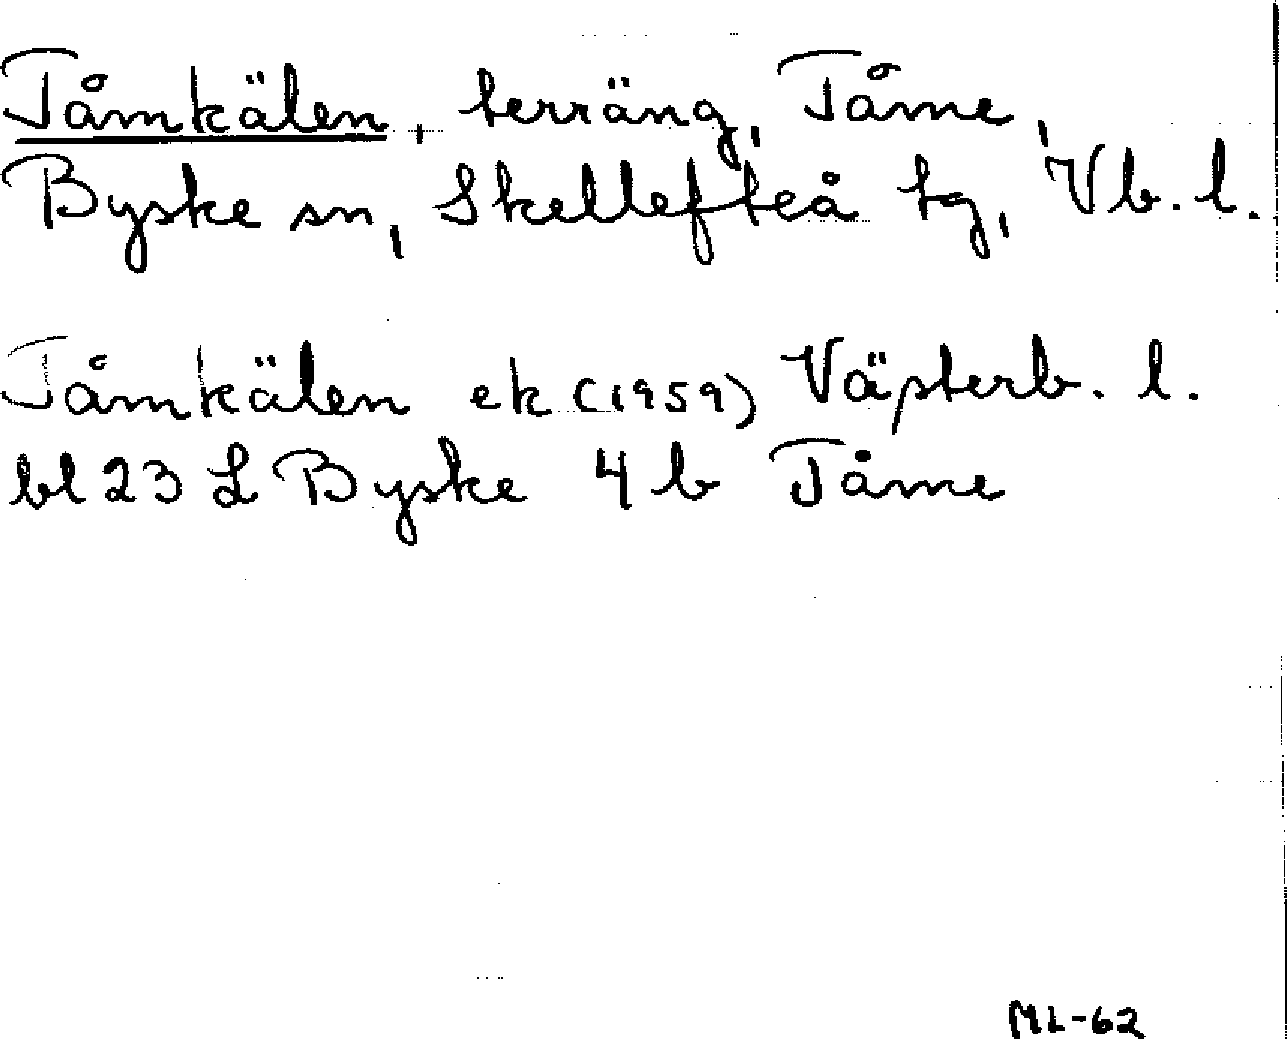 Tåmkälen, terräng, Tåme,
Byske sn, Skellefteå tg, Vb. l.
Tåmkälen ek (1959) Västerb. l.
bl 23 L Byske 4 b Tåme
ML-62